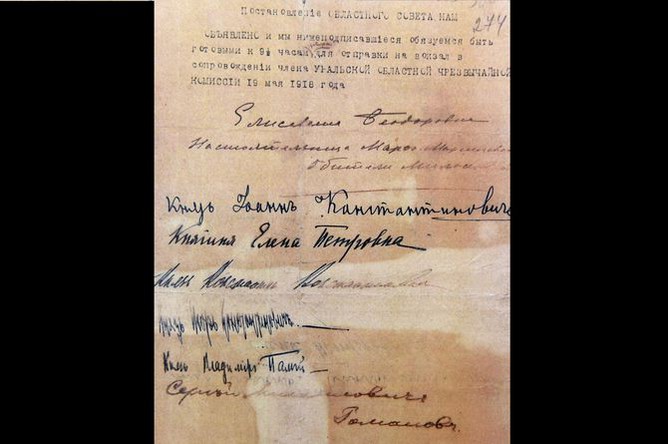 Постановленіе ОБЛАСТНОГО СОВЕТА НАМ
274
ОБЪЯВЛЕНО И МЫ НИЖЕПОДПИСАВШІЕСЯ ОБЯЗУЕМСЯ БЫТЬ
ГОТОВЫМИ К 9½ ЧАСАМ ДЛЯ ОТПРАВКИ НА ВОКЗАЛ В
СОПРОВОЖДЕНІИ ЧЛЕНА УРАЛЬСКОЙ ОБЛАСТНОЙ ЧРЕЗВЫЧАЙНОЙ
КОМИССІИ 19 МАЯ 1918 ГОДА
Елисавета Ѳеодоровна
Настоятельница Марѳо Маріинской
Обители Милос
Князь Іоаннъ Константиновичъ
Княгиня Елена Петровна
Князь Константинъ Константиновичъ
Князь Игорь Константиновичъ.
Князь Владиміръ Палѣй
Сергѣй Михайловичъ
Романовъ.